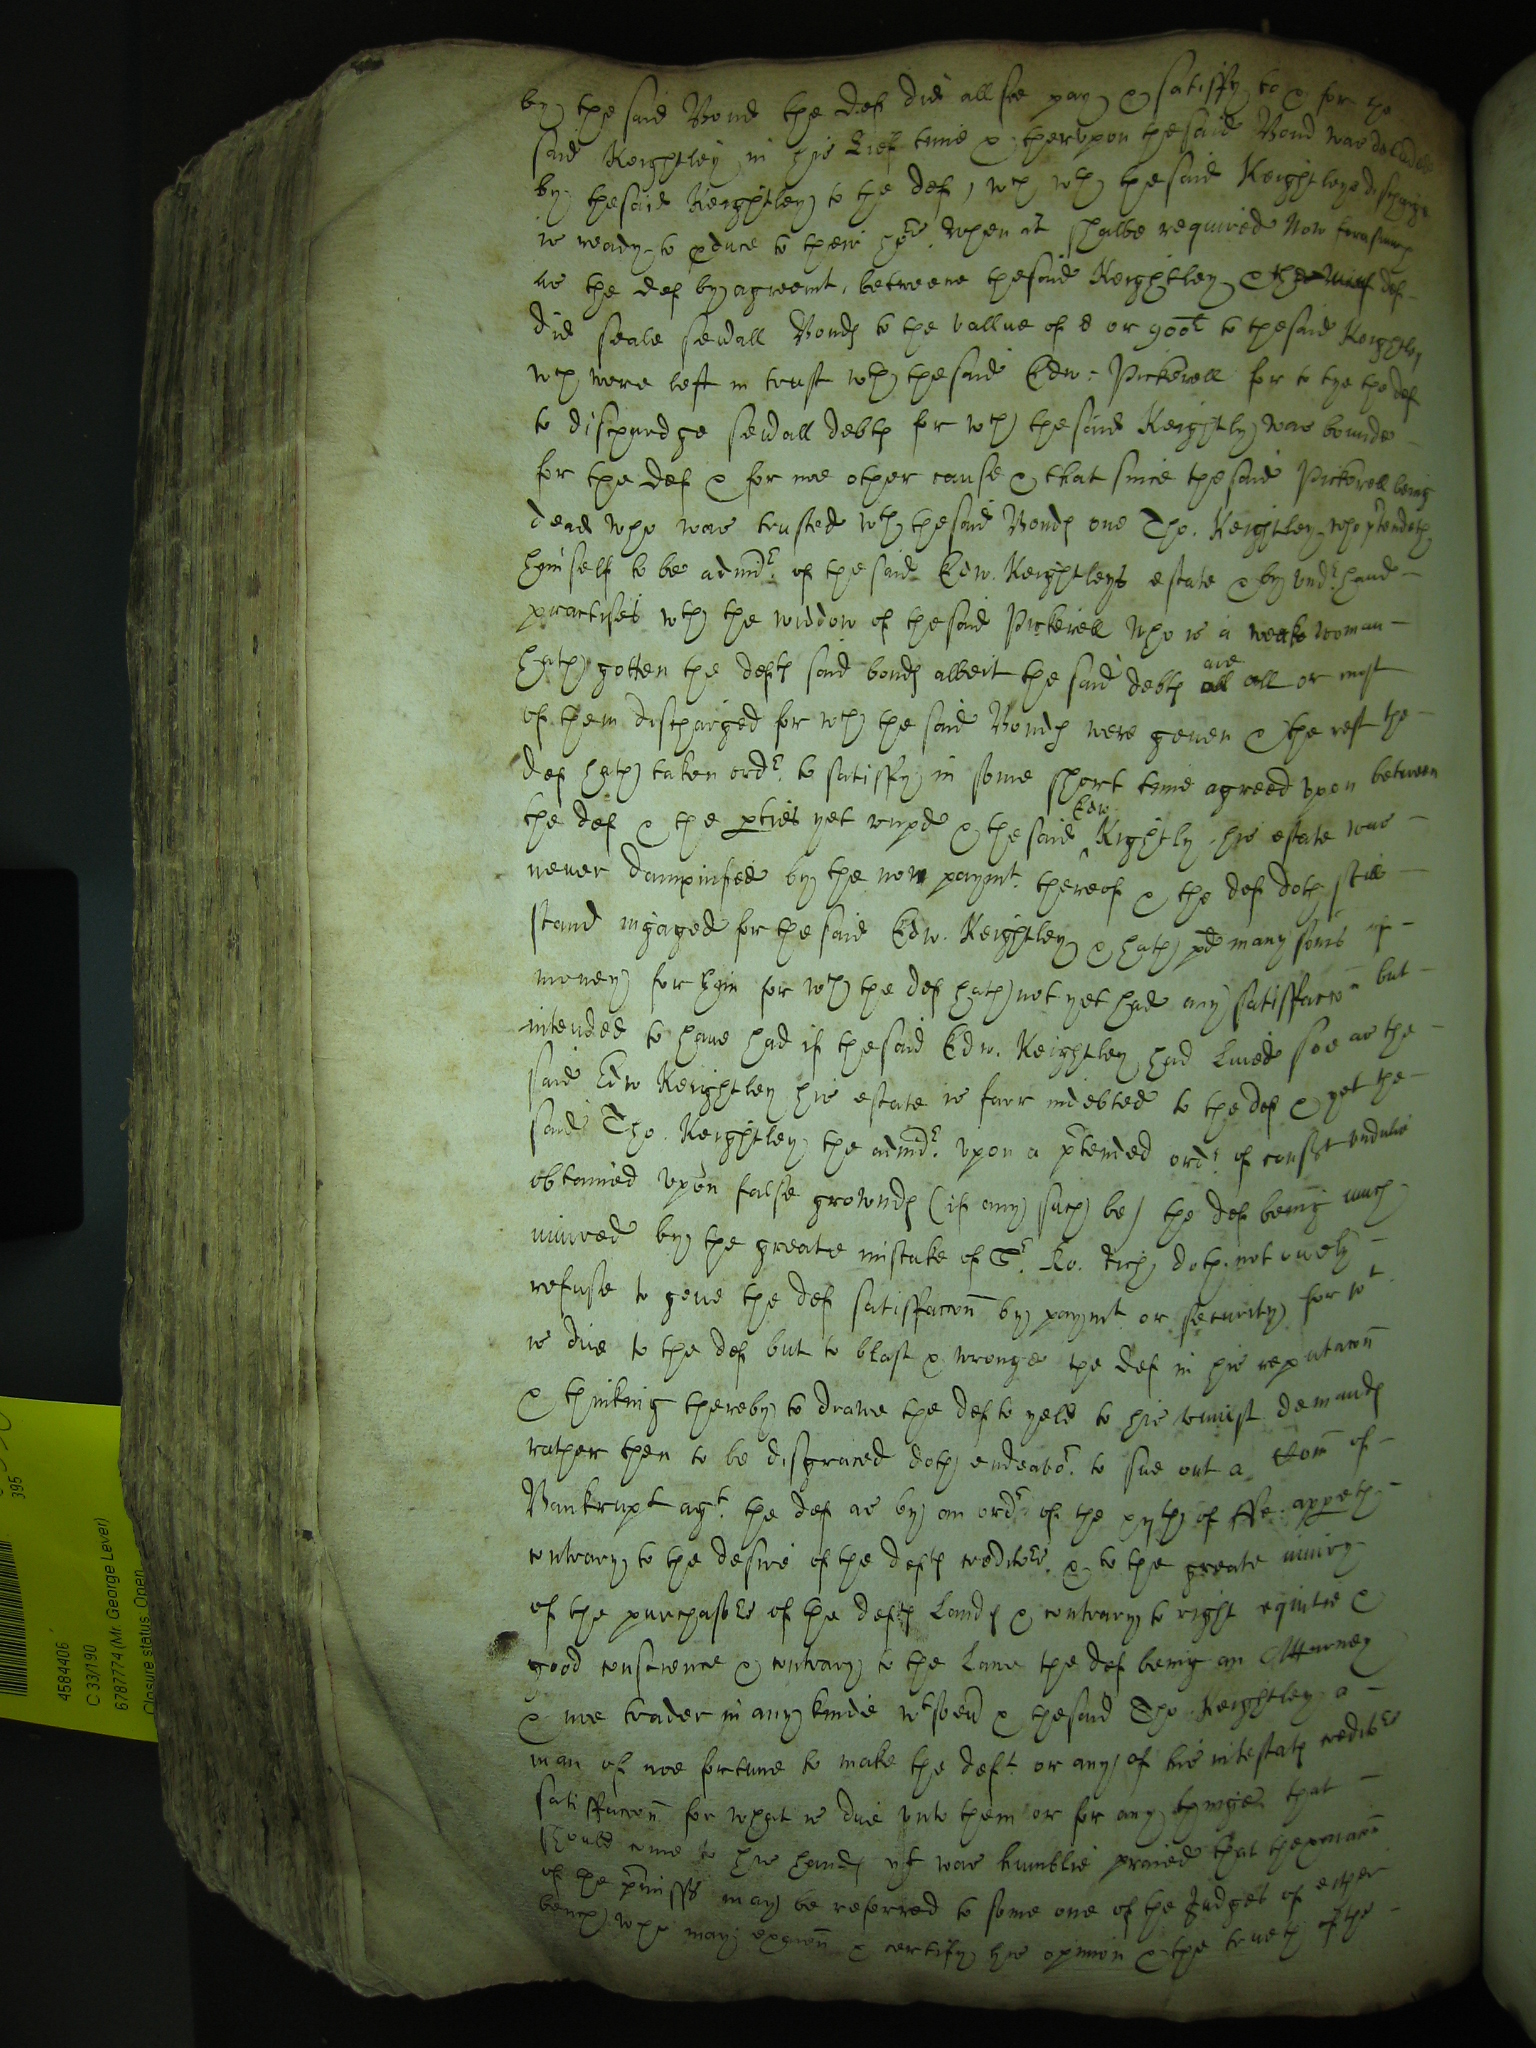 by the said Bond the def did allsoe pay & satisfy to & for the
said Keightley in his Lief time & thervpon the said Bond was deliuered
by the said Keightley to the def, wch wth the said Keightleyes discharge
is ready to pduce to their hors. when it shalbe required Now forasmuch
as the def by agreemt. betweene the said Keightley & the def
did seale seuall Bonds to the vallue of 8 or 900l to the said Keightley
wch were left in trust wth the said Edw: Pickerell for to tye the def
to dischardge seuall debts for wch the said Keightly was bounde
for the def & for noe other cause & that since the said Pickerell being
dead who was trusted wth the said Bonds one Tho. Keightley who ptendeth
himself to be admr. of the said Edw. Keightleys estate & by vndr hand
practises wth the widdow of the said Pickerell who is a weake woman
hath gotten the defts said bonds albeit the said debts are all or most
of them discharged for wch the said Bonds were geuen & the rest the
def hath taken ordr. to satisfy in some short time agreed vpon between
the def & the pties yet vnpd & the said Edw Kightly his estate was
neuer dampnified by the non paymt. thereof & the def doth still
stand ingaged for the said Edw. Keightley & hath pd many soms of
money for him for wch the def hath not yet had any satisfaccon but
intended to haue had if the said Edw. Keightley had Liued soe as the
said Edw Keightley his estate is farr indebted to the def & yet the
said Tho. Keightley the admr. vpon a ptended ordr. of Court vndulie
obtained vpon false grownds (if any such be) the def being much
iniured by the greate mistake of Sr. Ro. Rich doth not onely
refuse to geue the def satisfaccon by paymt or security for wt
is due to the def but to blast & wronge the def in his reputacon
& thinking thereby to drawe the def to yeld to his vniust demands
rather then to be disgraced doth endeavor. to sue out a Com of
Bankrupt agt. the def as by an ordr. of the xyth of ffe: appeth
contrary to the desire of the defts creditors. & to the greate iniury
of the purchasors of the defts Lands & contrary to right equitie &
good conscience & contrary to the Lawe the def being an Atturney
& noe trader in any kinde wtsoeu & the said Tho. Keightley a
man of noe fortune to make the deft. or any of his intestats creditors
satisfaccon for what is due vnto them or for any thinge that
should come to his hands yt was humblie praied that the exaiacon
of the pmisss may be referred to some one of the Judges of either
bench who may examn & certify his opinion & the trueth of the
395
4584406
C 33/190
6787774 (Mr. George Lever)
Closure status: Open